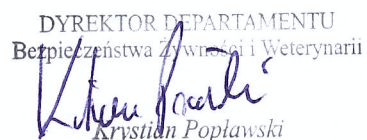 DYREKTOR DEPARTAMENTU
Bezpieczeństwa Żywności i Weterynarii
Krystian Popławski